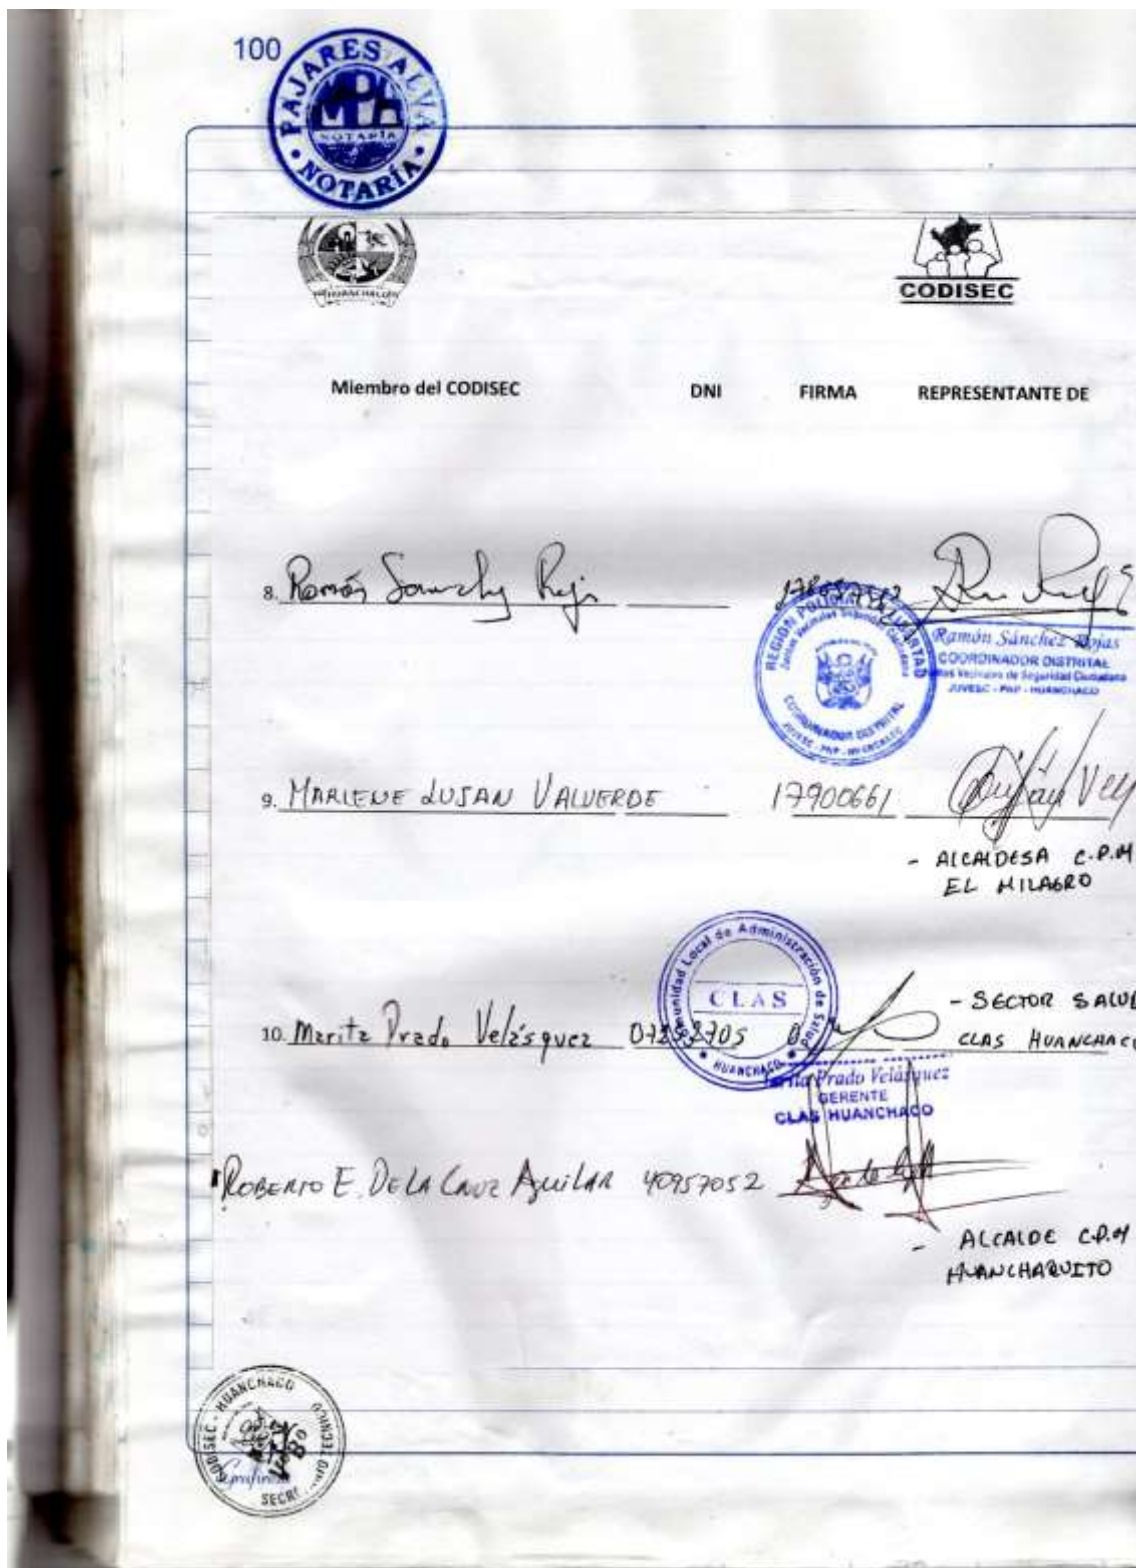 100
PAJARES ALVA
NOTARÍA
NOTARÍA
HUANCHACO
CODISEC
Miembro del CODISEC DNI FIRMA REPRESENTANTE DE
8. Ramón Sanchez Rojas
REGION POLICIAL LA LIBERTAD
Juntas Vecinales Seguridad Ciudadana
COORDINADOR DISTRITAL
JUVESC - PNP - HUANCHACO
Ramón Sánchez Rojas
COORDINADOR DISTRITAL
Vecinales de Seguridad Ciudadana
JUVESC - PNP - HUANCHACO
9. MARLENE LUJAN VALVERDE 17900661
- ALCALDESA C.P.M
EL MILAGRO
Comunidad Local de Administración de Salud
CLAS
HUANCHACO
10. Marita Prado Velásquez
- SECTOR SALUD
CLAS HUANCHACO
Prado Velásquez
GERENTE
CLAS HUANCHACO
ROBERTO E. DE LA CRUZ AGUILAR 40957052
- ALCALDE C.P.M
HUANCHAQUITO
CODISEC - HUANCHACO
Grafiresa